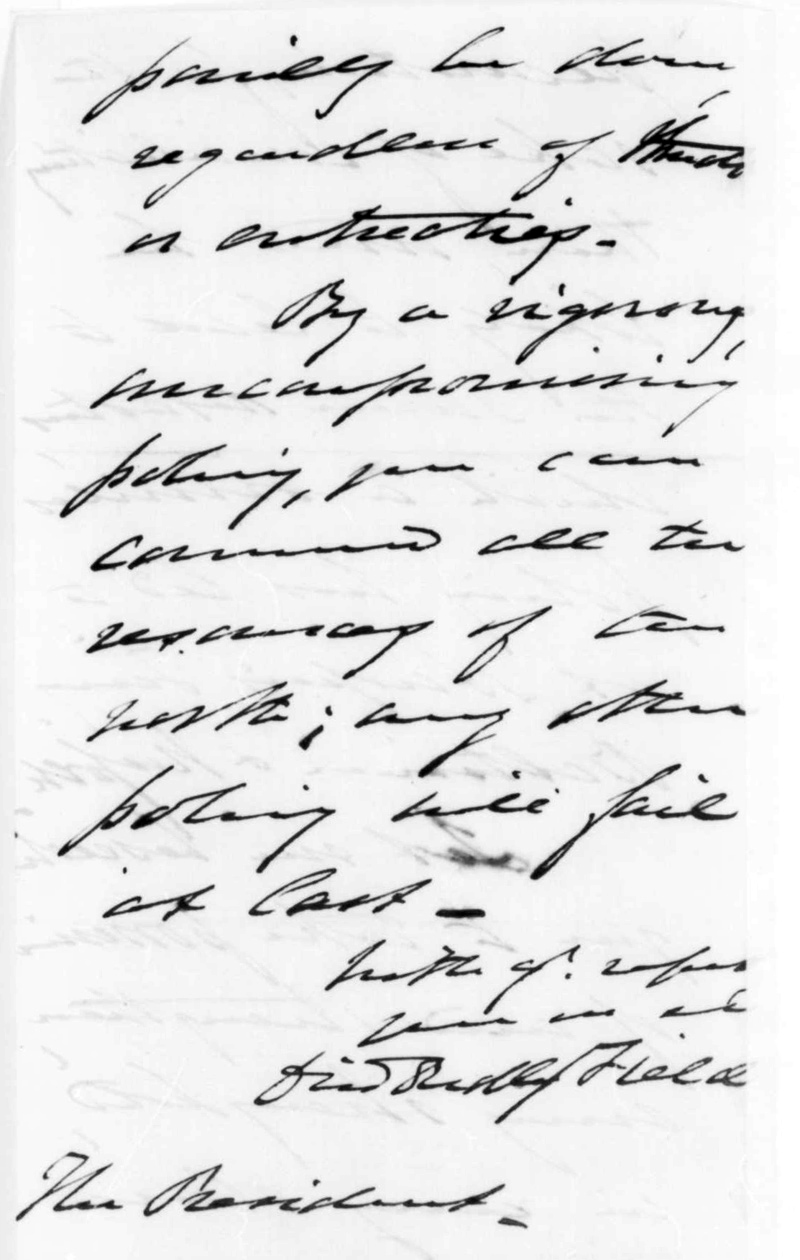 possibly be done,
regardless of
or entreaties.
By a vigorous,
uncompromising
policy, you can
command all the
resources of the
north; any other
policy will fail
at last —
With gt. respect
your ob. st
David Dudley Field
The President.